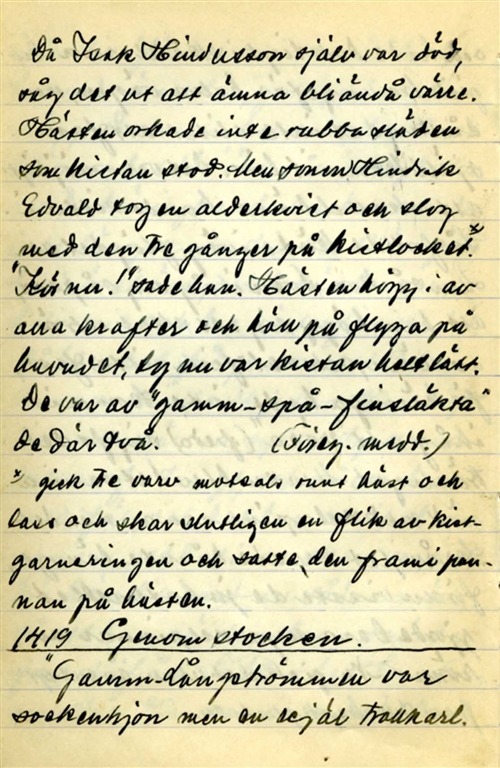 Då Isak Hindersson själv var död,
såg det ut att ämna bli ändå värre.
Hästen orkade inte rubba släden
som kistan stod. Men sonen Hindrik
Edvald tog en alderkvist och slog
med den tre gånger på kistlocket.x
"Kör nu!" sade han. Hästen högg i av
alla krafter och höll på flyga på
huvudet, ty nu var kistan helt lätt.
De var av "gamm-spå-finsläkta"
de där två. (Föreg. medd.)
x gick tre varv motsols runt häst och
lass och skar slutligen en flik av kist-
garneringen och satte den fram i pan-
nan på hästen.
1419 Genom stocken.
"Gamm-Långströmmen var
sockenhjon men en rejäl trollkarl.